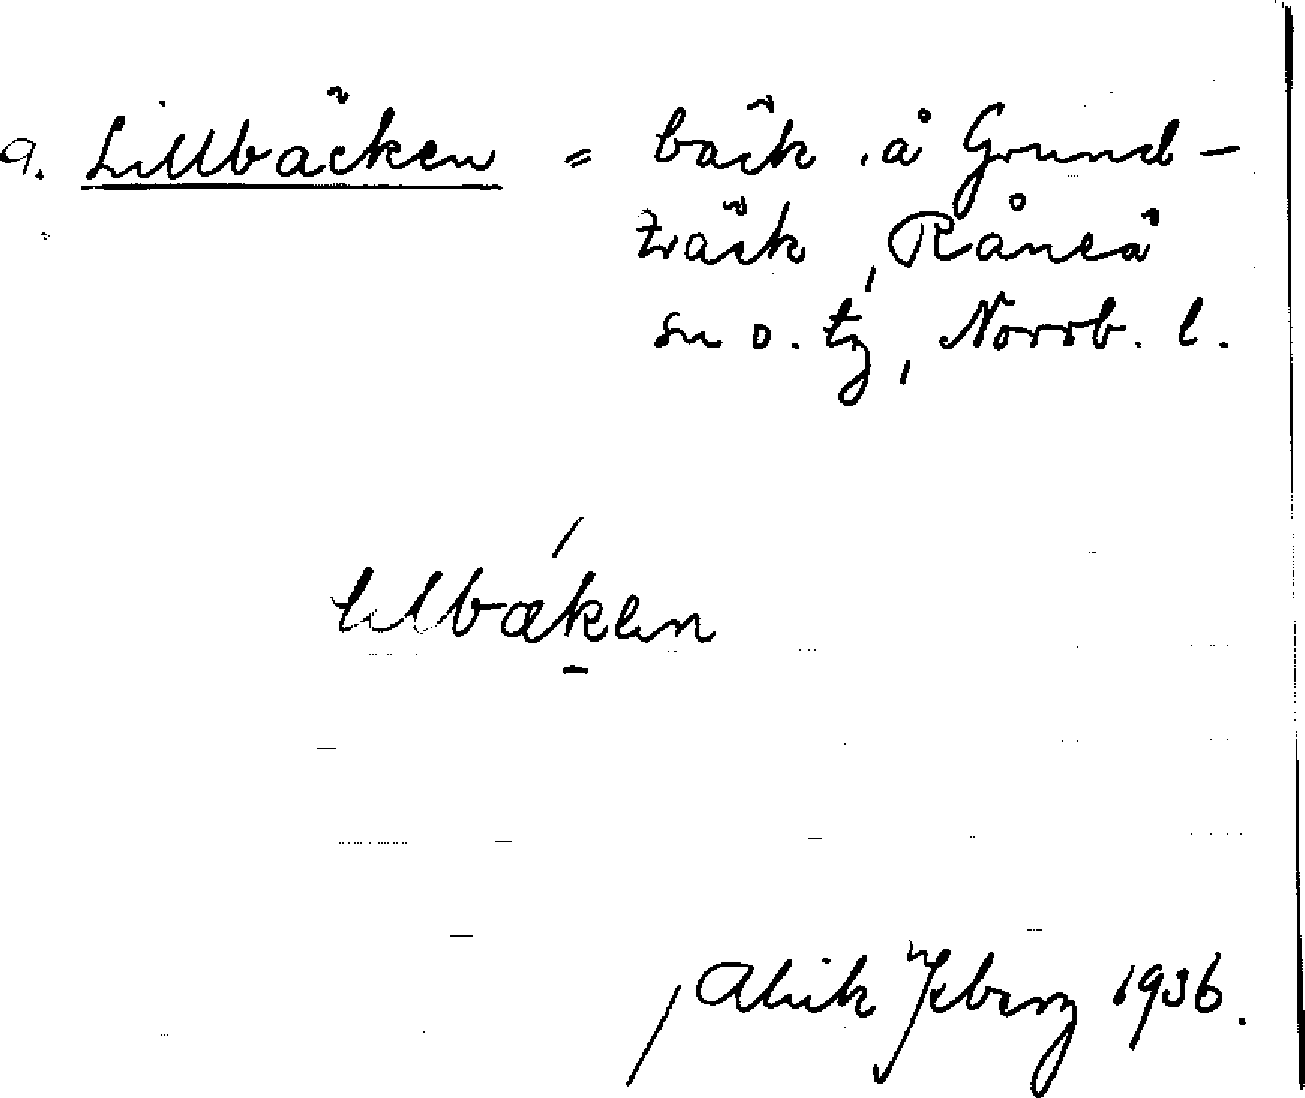 a. Lillbäcken = bäck å Grund-
träsk, Råneå
sn o. tg, Norrb. l.
lillbækken
/ Alrik Byberg 1936.